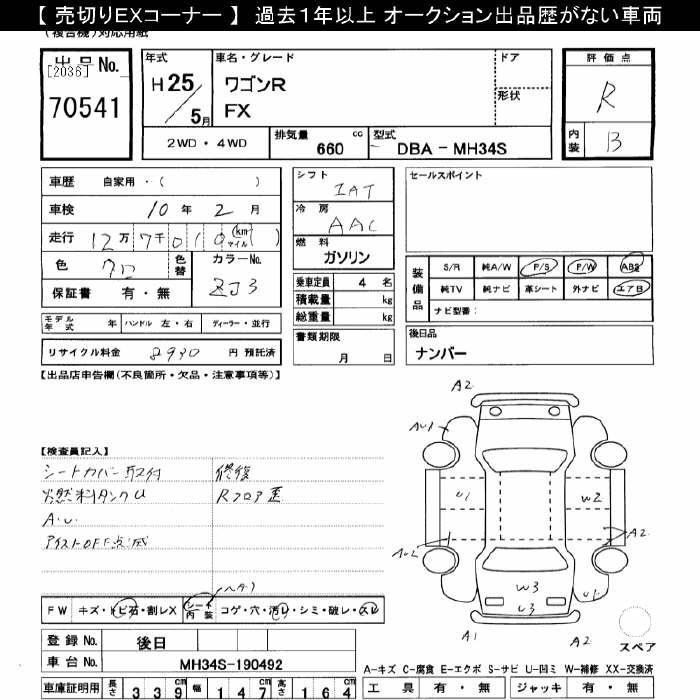 【 売切りEXコーナー 】 過去1年以上 オークション出品歴がない車両
(複合機)対応用紙
出品 No.
[2036]
70541
年式
H 25
5月
車名・グレード
ワゴンR
FX
ドア
形状
評価点
R
内装
B
2WD・4WD
排気量 660 cc
型式 DBA - MH34S
車歴 自家用・( )
車検 10 年 2 月
走行 12万 7千 0 ( 0 km マイル )
色 クロ
色替
カラーNo. ZJ3
保証書 有・無
シフト
IAT
冷房
AAC
燃料
ガソリン
乗車定員 4 名
積載量 kg
総重量 kg
書類期限
月 日
セールスポイント
装備品
S/R 純A/W P/S P/W ABS
純TV 純ナビ 革シート 外ナビ エアB
ナビ型番:
モデル年式 年 ハンドル 左・右 ディーラー・並行
リサイクル料金 8930 円 預託済
後日品
ナンバー
【出品店申告欄(不良箇所・欠品・注意事項等)】
【検査員記入】
シートカバー取付 修復
燃料タンクU Rフロア歪
A.U.
アイストOFF点滅
A2
AU1
U1
W2
AU2
A2
W3
U3
U1
A1
A2
スペア
FW キズ・トビ石・割レX シート内装 コゲ・穴・汚レ・シミ・破レ・スレ
登録 No. 後日
車台 No. MH34S-190492
車庫証明用 長さ 3 3 9 幅 1 4 7 高さ 1 6 4
A-キズ C-腐食 E-エクボ S-サビ U-凹ミ W-補修 XX-交換済
工具 有・無 ジャッキ 有・無